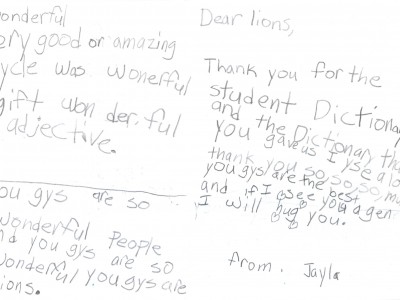 onderful
ery good or amazing
ycle was wonerful
gift won der. ful
adjective.
ou gys are so
wonderful People
nd you gys are so
wonderful you gys are
ions.
Dear lions,
Thank you for the
student Dictionary
and the Dictionary tha
you gave us I yse a lo
thank you so, so, so, mu
you gys are the best
and if I see you agen
I will hug you.
from. Jayla